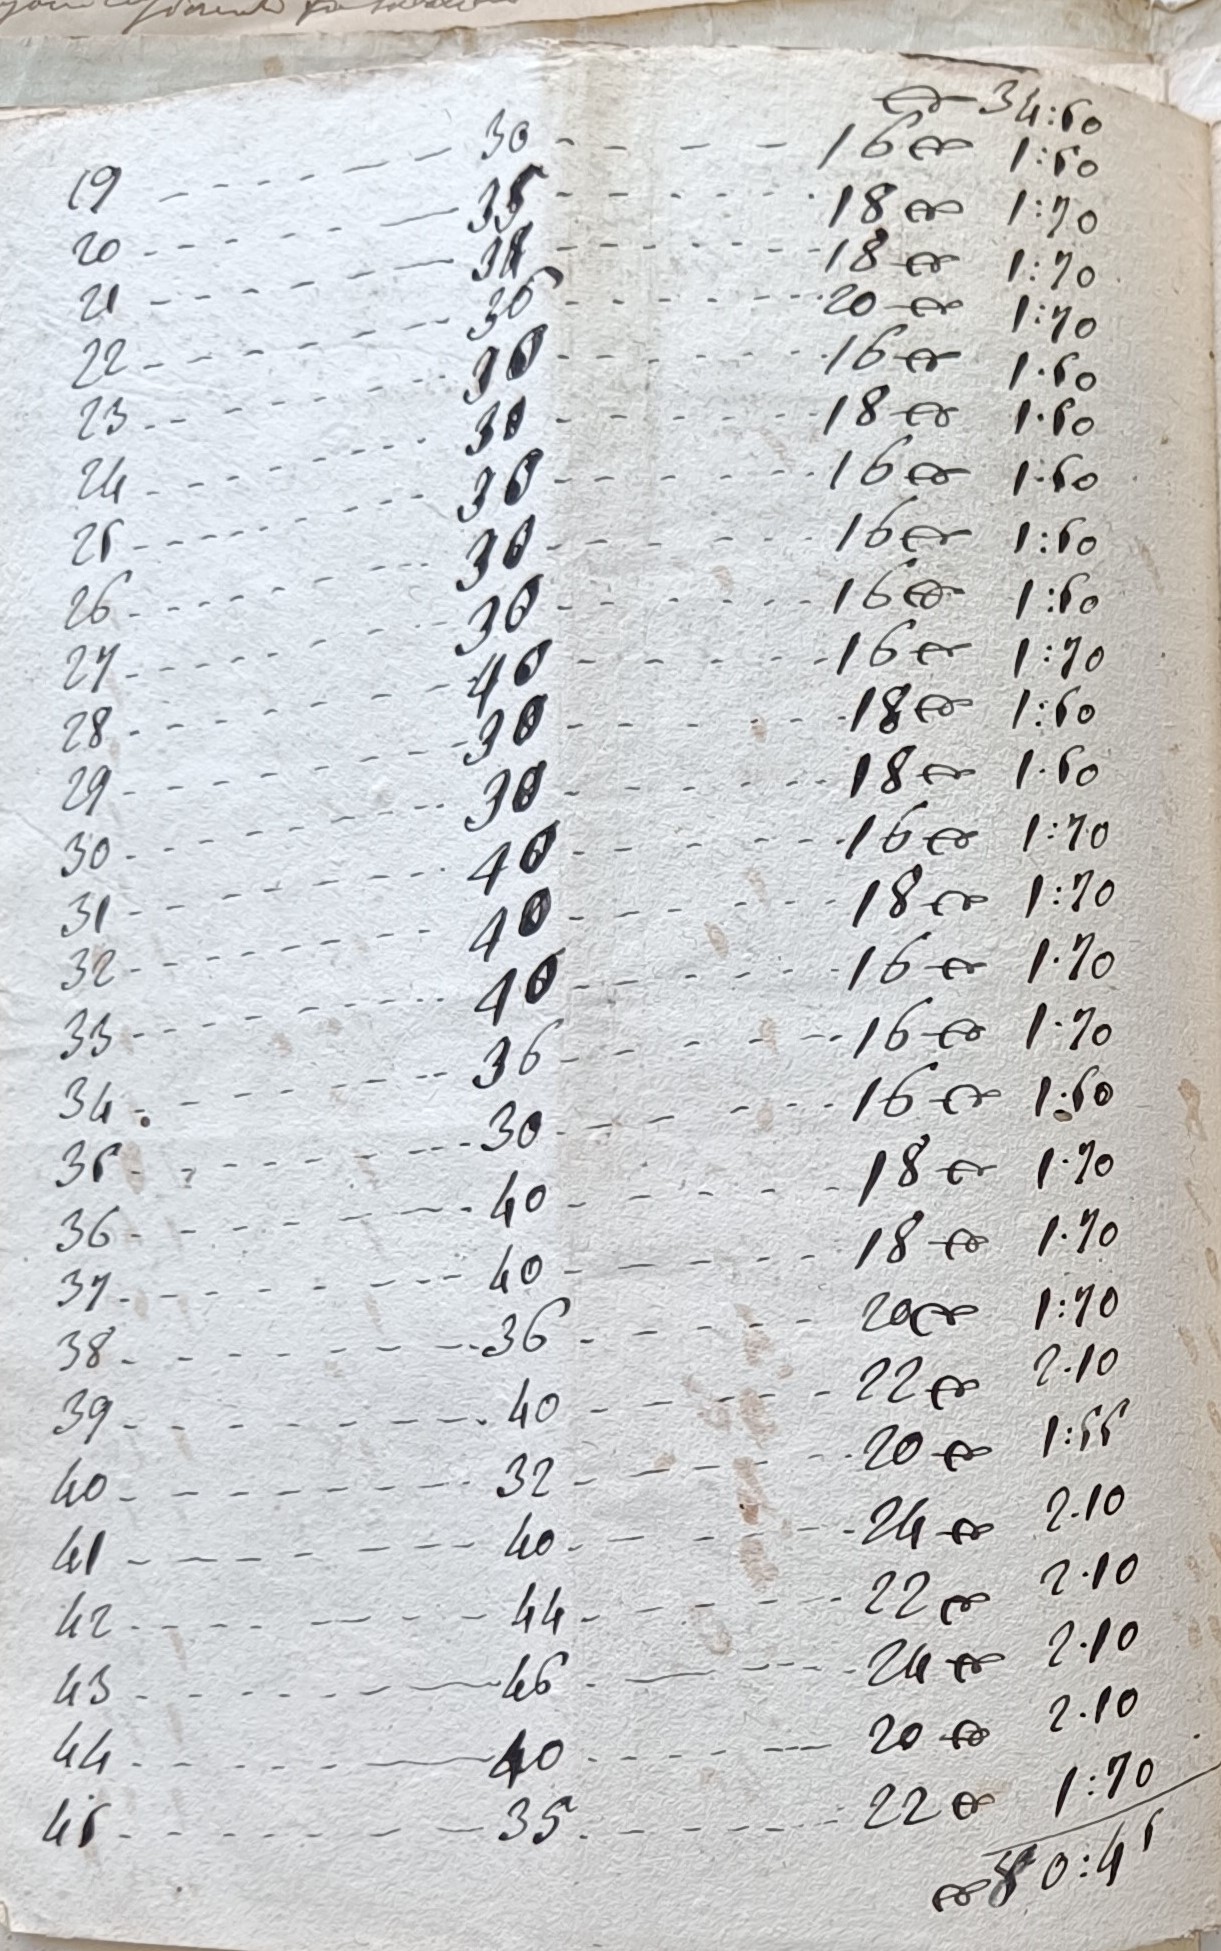 34:50
19 30 16 1:50
20 35 18 1:70
21 18 1:70
22 36 20 1:70
23 30 16 1.50
24 30 18 1.50
25 30 16 1.50
26 30 16 1:50
27 30 16 1:50
28 40 16 1:70
29 30 18 1:50
30 30 18 1.50
31 40 16 1:70
32 40 18 1:70
33 40 16 1.70
34 36 16 1.70
35 30 16 1:50
36 40 18 1.70
37 40 18 1.70
38 36 20 1:70
39 40 22 2.10
40 32 20 1:55
41 40 24 2.10
42 44 22 2.10
43 46 24 2.10
44 40 20 2.10
45 35 22 1:70
80:45